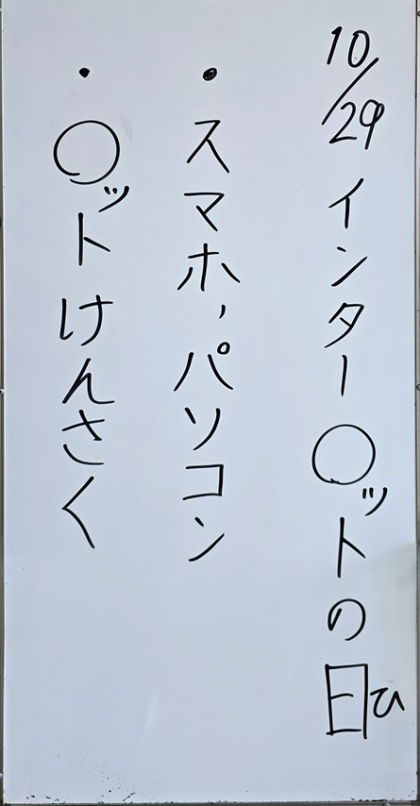 10/29 インター〇ットの日ひ
・スマホ,パソコン
・〇ットけんさく